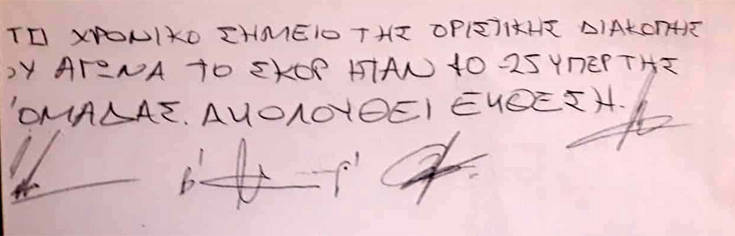 ΤΟ ΧΡΟΝΙΚΟ ΣΗΜΕΙΟ ΤΗΣ ΟΡΙΣΤΙΚΗΣ ΔΙΑΚΟΠΗΣ
ΟΥ ΑΓΩΝΑ ΤΟ ΣΚΟΡ ΗΤΑΝ 40-25 ΥΠΕΡ ΤΗΣ
ΟΜΑΔΑΣ. ΑΚΟΛΟΥΘΕΙ ΕΚΘΕΣΗ.
β' γ'